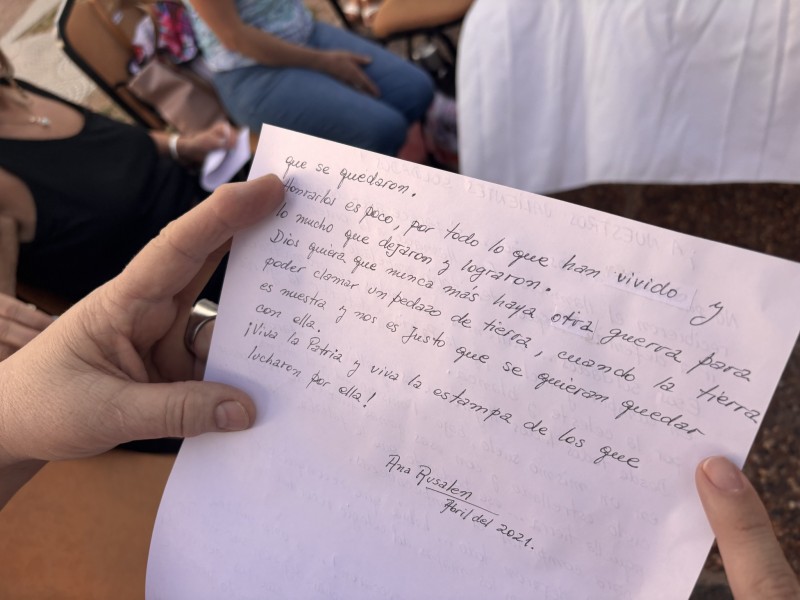 que se quedaron.
Honrarlos es poco, por todo lo que han vivido y
lo mucho que dejaron y lograron.
Dios quiera que nunca más haya otra guerra para
poder clamar un pedazo de tierra, cuando la tierra
es nuestra y nos es Justo que se quieran quedar
con ella.
¡Viva la Patria y viva la estampa de los que
lucharon por ella!
Ana Rusalen
Abril del 2021.